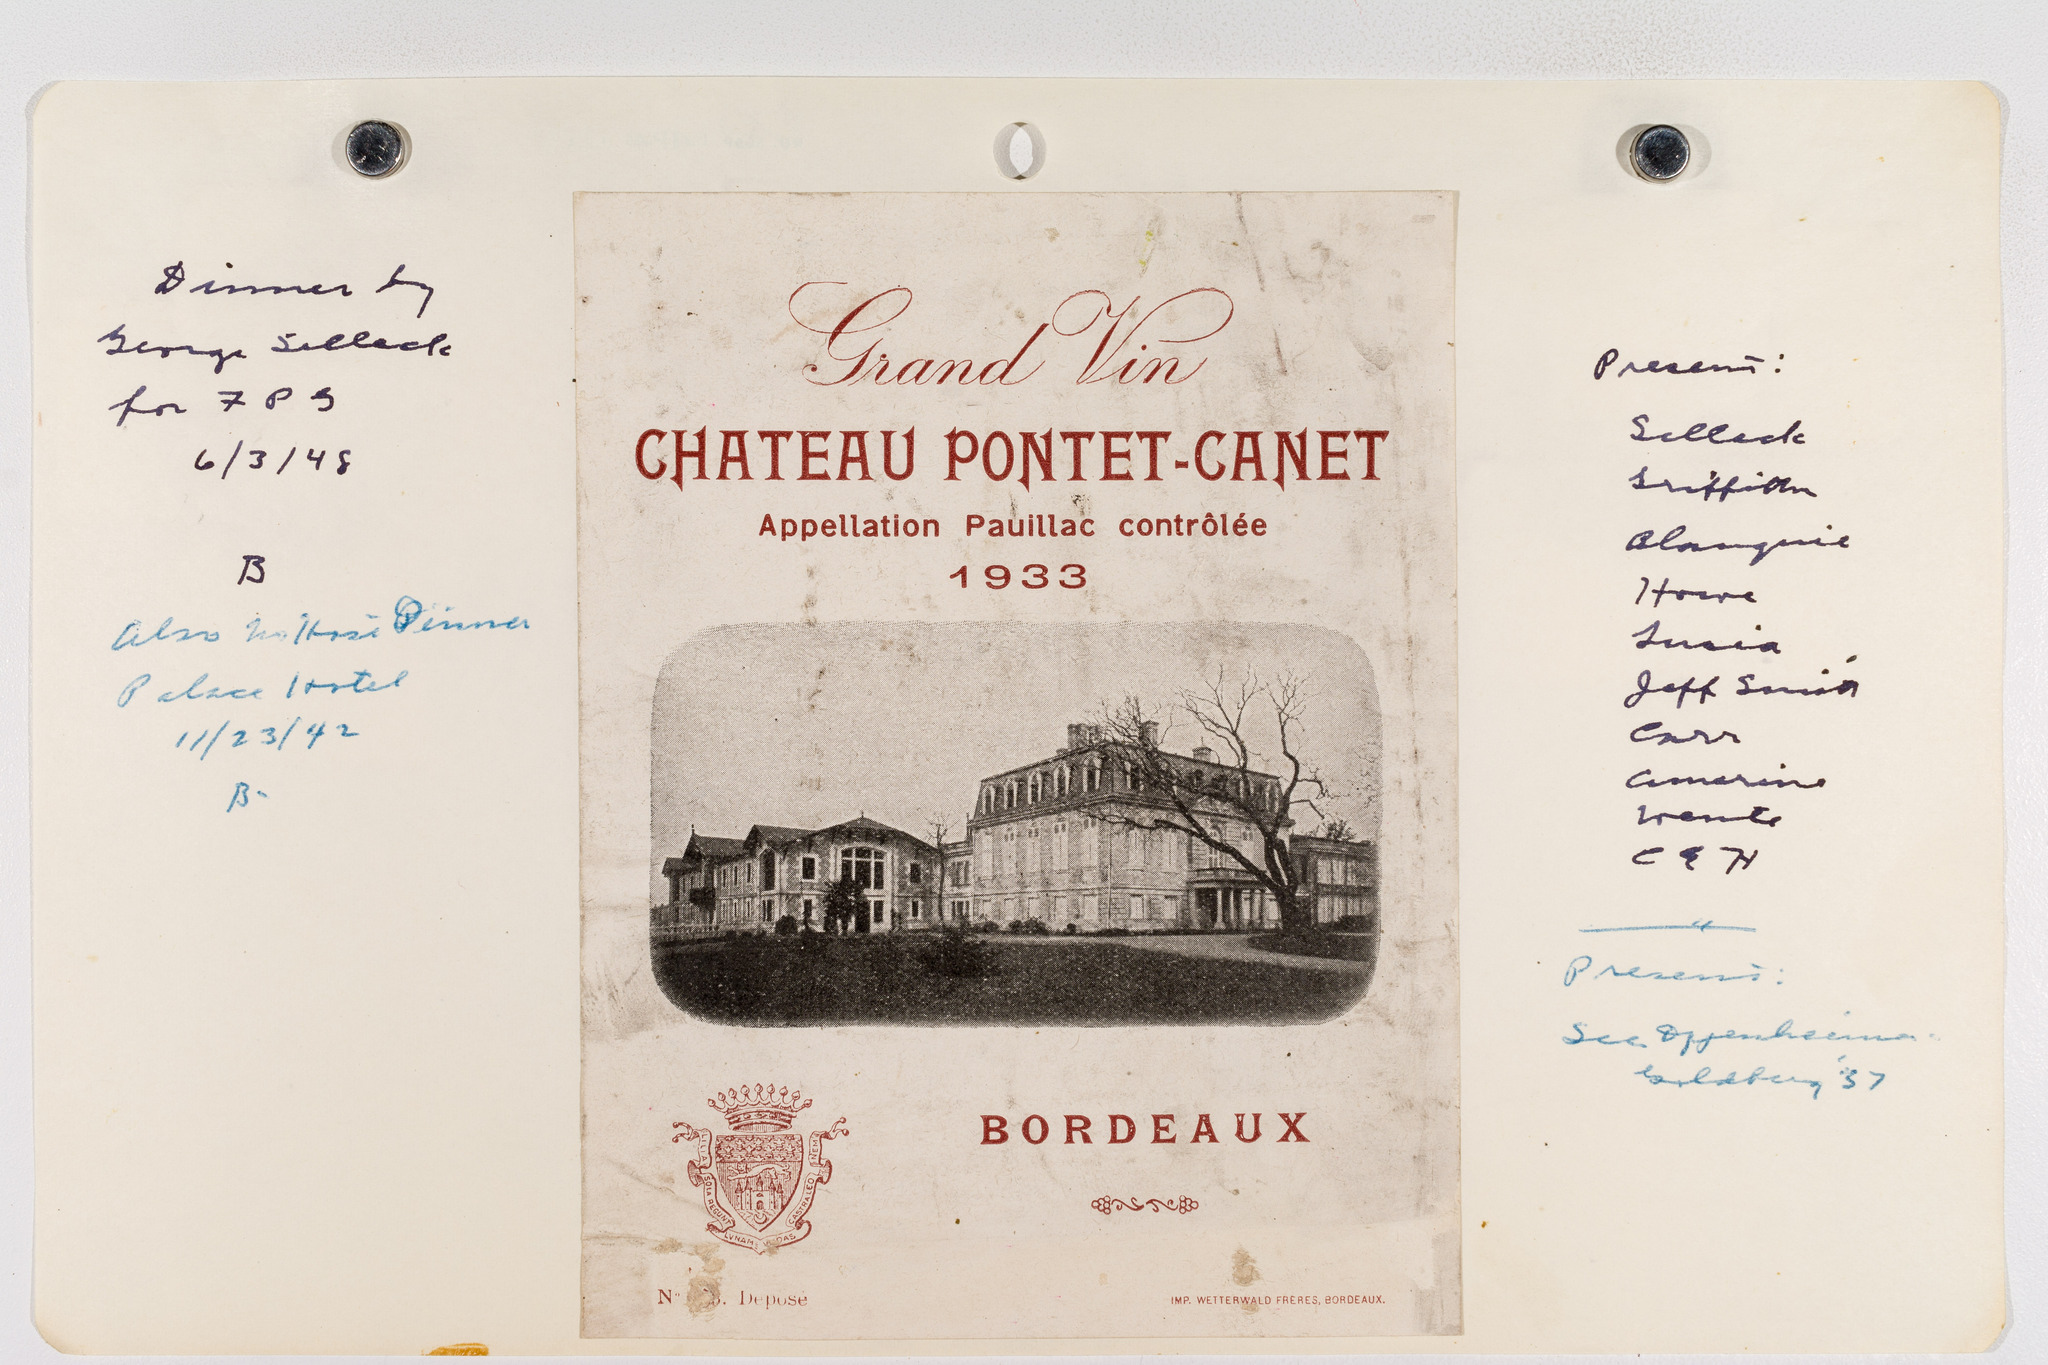 Dinner by
George Selleck
for F P G
6/3/48
B
Also Dinner
Palace Hotel
11/23/42
B-
Grand Vin
CHATEAU PONTET-CANET
Appellation Pauillac contrôlée
1933
BORDEAUX
LILIA
SOLA REGUNT
LVNAM
UNDAS
CASTRA LEO
NEM
No Déposé
IMP. WETTERWALD FRÈRES, BORDEAUX.
Present:
Selleck
Griffith
Howe
Lucia
Jeff Smith
Carr
Amerine
Wente
C E H
Present:
See Oppenheimer
Goldberg '37